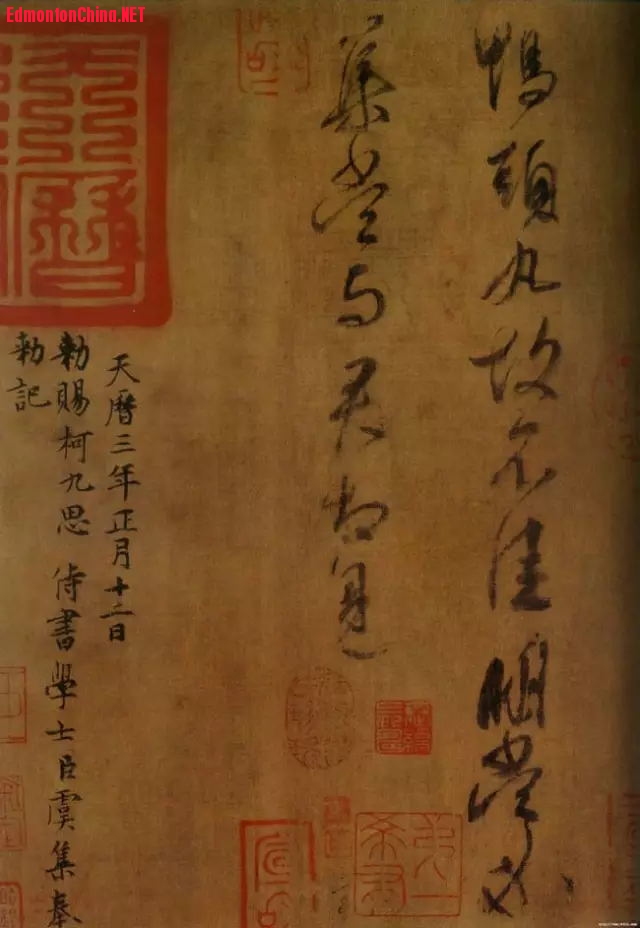 EdmontonChina.NET
鴨頭丸故不佳明當必
集當與君相見
天曆
天曆三年正月十二日
勅賜柯九思 侍書學士臣虞集奉
勅記